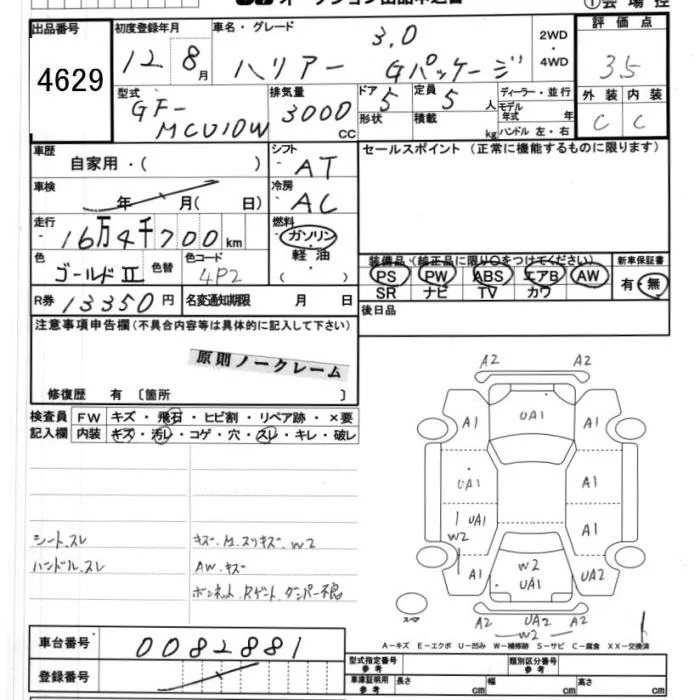 オークション出品申込書
①会場控
出品番号 4629
初度登録年月 12 8月
車名・グレード 3.0
ハリアー Gパッケージ
2WD・4WD
評価点 3.5
外装 C 内装 C
型式 GF-MCU10W
排気量 3000cc
ドア 5 形状
定員 5人 積載 kg
ディーラー・並行
モデル年式 年
ハンドル 左・右
車歴 自家用・( )
シフト AT
セールスポイント(正常に機能するものに限ります)
車検 年 月( 日)
冷房 AC
走行 16万4千700km
燃料 ガソリン・軽油・( )
色 ゴールドⅡ 色替 色コード 4P2
装備品(純正品に限り○をつけてください)
PS PW ABS エアB AW
SR ナビ TV カワ
新車保証書 有・無
R券 13350円 名変通知期限 月 日
後日品
注意事項申告欄(不具合内容等は具体的に記入して下さい)
原則ノークレーム
修復歴 有〔箇所 〕
検査員記入欄
FW キズ・飛石・ヒビ割・リペア跡・×要
内装 キズ・汚レ・コゲ・穴・スレ・キレ・破レ
シート.スレ
ハンドル.スレ
キズ.M.スリキズ.W2
AW.キズ
ボンネット.Rゲート.ダンパー不良
A2 A2
A1 UA1 A1
UA1 A1
UA1 W2 A1
A1 W2 UA1 UA2
スペア
A2 UA2 W2 A2
A-キズ E-エクボ U-凹み W-補修跡 S-サビ C-腐食 XX-交換済
車台番号 0082881
登録番号
型式指定番号 参考
類別区分番号 参考
車庫証明用 参考 長さ cm 幅 cm 高さ cm